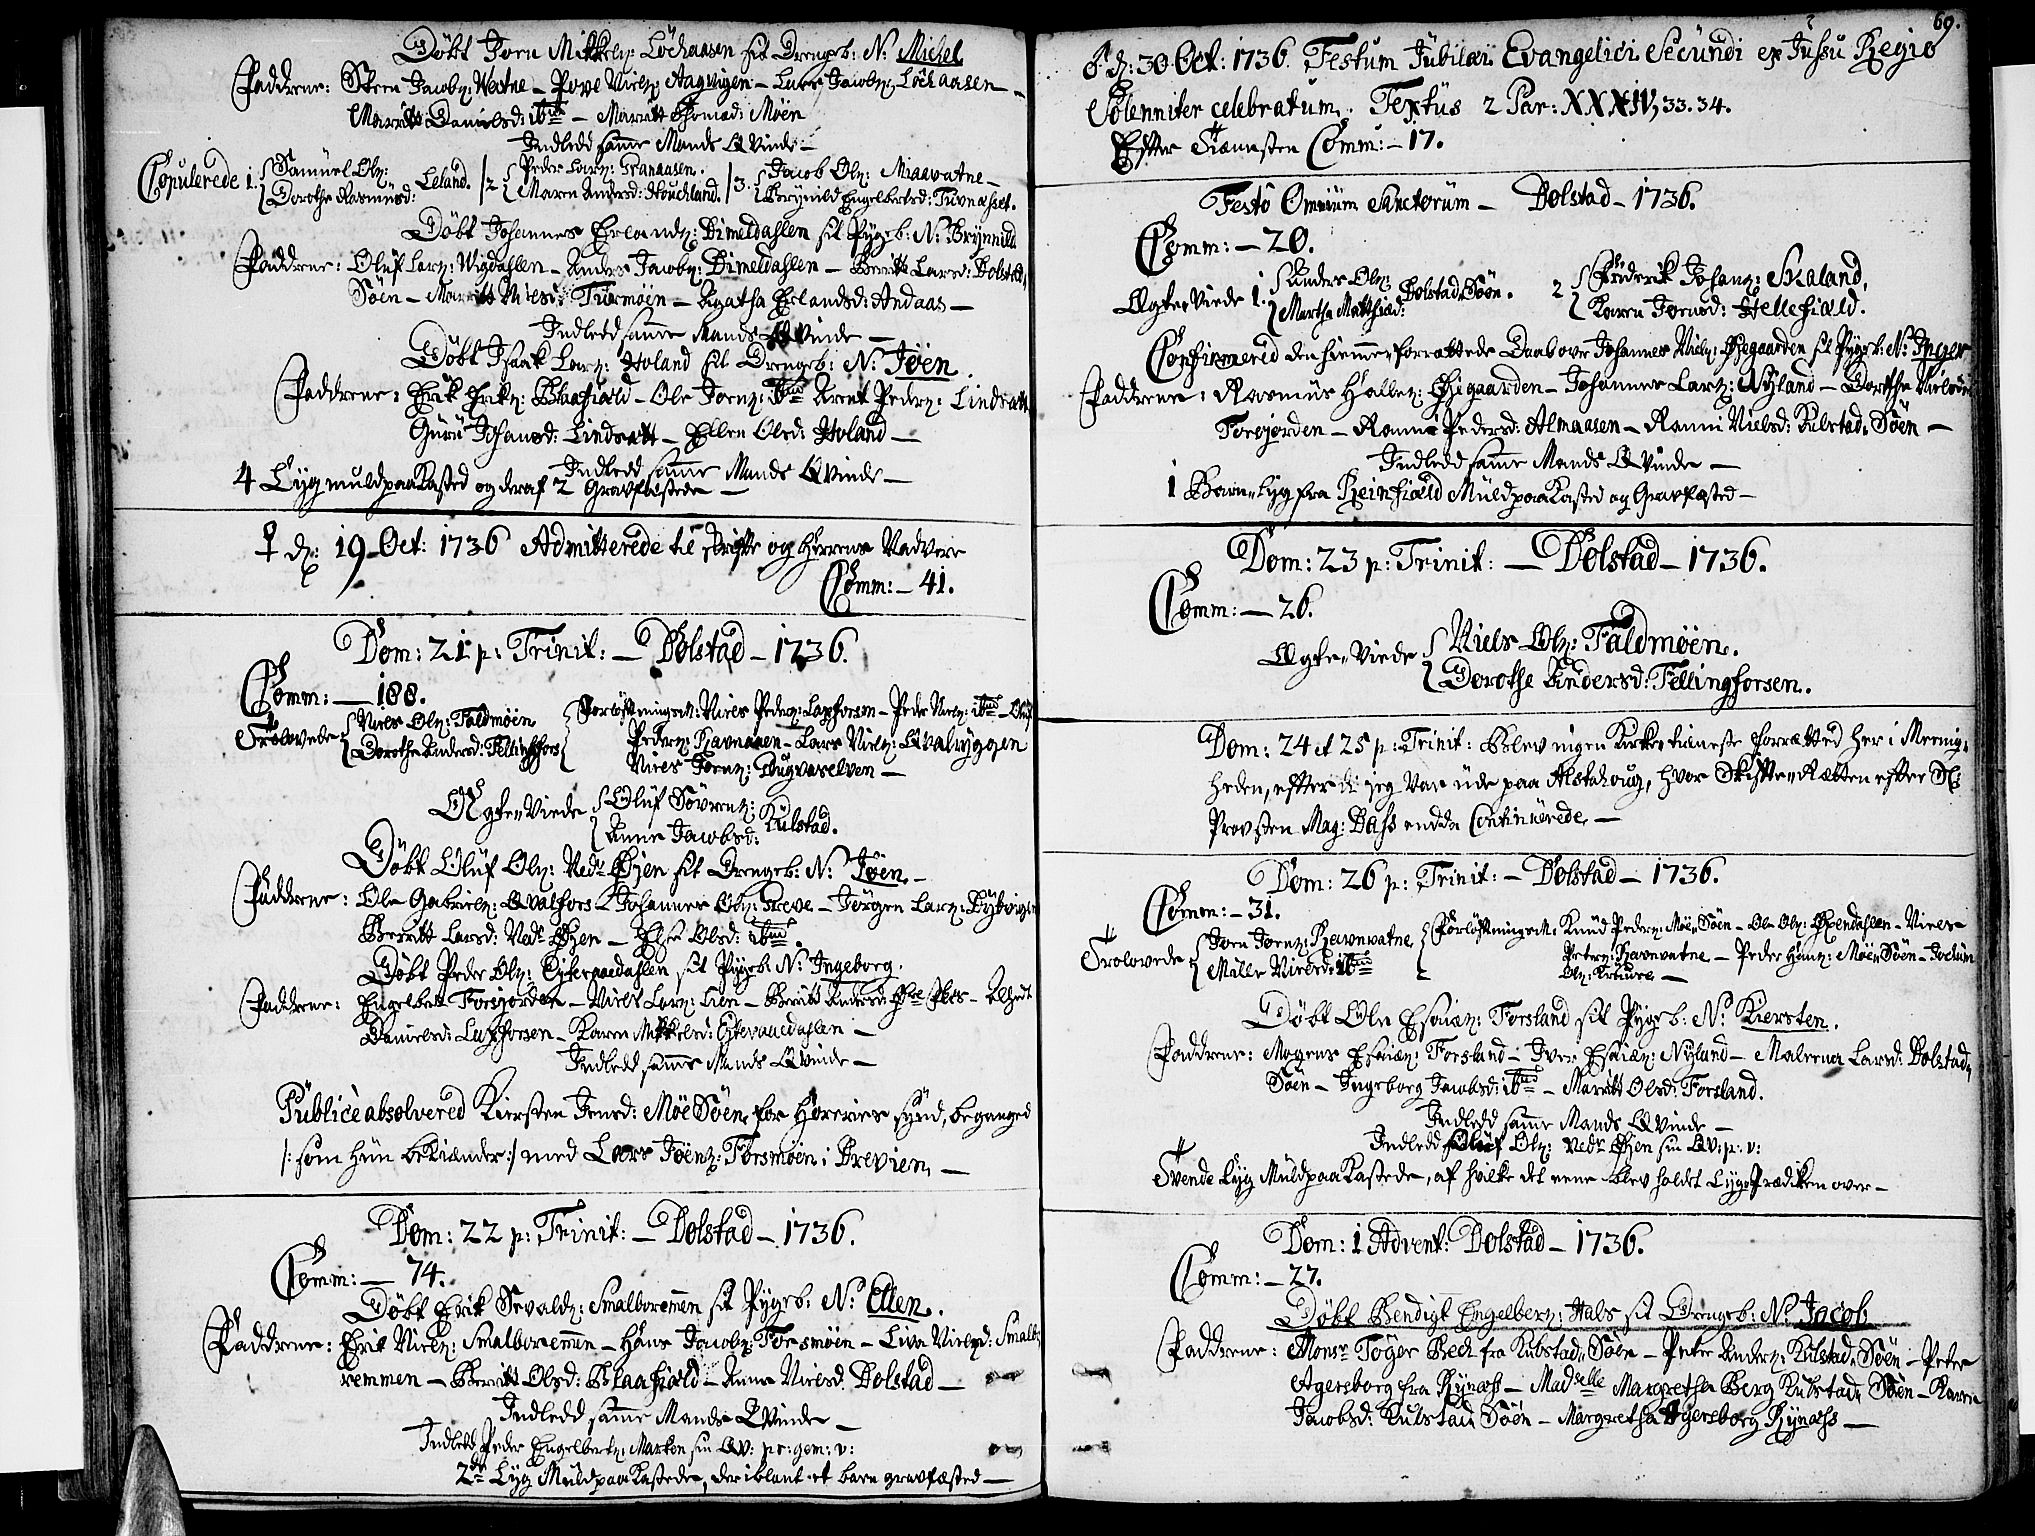 Döbt Joen Mikkelz: Löchaasen sit Drengeb: N: Michel
Faddrene: Steen Jacobz: Westne – Pove Nielz: Aagvigen – Lars Jacobz: Löchaasen –
Marritt Danielsd: ibid – Marritt Thomsd: Möen
Indledd samme Mands Qvinde –
Copulerede 1. Samuel Olz: Dorothe Rasmusd: Leland. 2 Peder Larz: Granaasen. Maren Andersd: Houchland. 3. Jacob Olz: Miaavatne – Brynild Engelbertsd: Tuvnæsset.
Döbt Johannes Erlandz: Dimeldahlen sit Pigeb: N: Brynnild
Faddrene: Oluf Larz: Wigdahlen – Anders Jacobz: Dimeldahlen – Beritte Larsd: Dolstad,
Söen – Marritt Nielsd: Turmöen – Agatha Erlandsd: Andaas –
Indledd samme Mands Qvinde –
Döbt Isaak Larz: Holand sit Drengeb: N: Jöen.
Faddrene: Erik Erikz: Blaafiæld – Ole Joenz: ibid Arent Pederz: Lindsætt
Guru Johansd: Lindsætt – Ellen Olsd: Holand –
Indledd samme Mands Qvinde –
4 Lyg muldpaaKasted og deraf 2 Gravfæstede –
♀ d: 19 Oct: 1736 Admitterede til skrifte og Herrens Nadvere
Comm: – 41.
Dom: 21 p: Trinit: – Dolstad – 1736.
Comm: – 188.
Trolovede Niels Olz: Faldmöen Dorothe Andersd: Fellingfors Forlöftningsm: Niels Pederz: Laxforsen – Peder Nielz: ibid – Oluf
Pederz: Ravnaaen – Lars Nielz: Qvalryggen
Niels Joenz: Drugvaselven –
Ægte Viede Oluf Sövrenz: Anne Jacobsd: Kulstad.
Döbt Oluf Olz: Vedr Öyen sit Drengeb: N: Jöen. –
Faddrene: Ole Gabrielz: Qvalfors – Johannes Olz: Greve – Jörgen Larz:
Berritt Larsd: Vedr Öyen – Else Olsd: ibid.
Döbt Peder Olz: Eiteraaedahlen sit Pigeb: N: Ingeborg.
Faddrene: Engelbret Forsjorden – Niels Larz: Lien – Berritt Andersd: – Lisbedt
Danielsd: Laxforsen – Karen Mikkelsd: Eiteraaedahlen –
Indledd samme Mands Qvinde –
Publicè absolvered Kiersten Jensd: MöeSöen, for Horeries synd, beganged
/: som hun bekiender :/ med Lars Jöenz: Forsmöen i Brevien, –
Dom: 22 p: Trinit: – Dolstad – 1736.
Comm: – 74.
Döbt Erik Sevaldz: Smalboremmen sit Pigeb: N: Ellen.
Faddrene: Erik Nielz: Smalboremmen – Hans Jacobz: Forsmöen – Live Nielsd: Smalbo
remmen – Berritt Olsd: Blaafiæld – Anne Nielsd. Dolstad –
Indledd samme Mands Qvinde –
Indledd Peder Engelbertz: Marken sin Qv: pr: gem: v:
2de Lyg MuldpaaKastede, der iblant et barn gravfæsted –
69.
♂ d: 30 Oct: 1736. Festum Jubilæi Evangelici Secundi ex Jussu Regio
Solenniter celebratum. Textus 2 Par: XXXIV, 33. 34.
Efter Tienesten Comm: – 17.
Festo Omnium Sanctorum – Dolstad – 1736.
Comm: – 20.
Ægte Viede 1. Anders Olz: Martha Matthiæd: Dolstad Söen. 2 Friderik Johanz: Skaland, Karen Joensd: Hellefiæld.
Confirmered den hiemmeforrættede Daab over Johannes Nielz: Öyegaarden sit Pigeb: N: Inger
Faddrene: Rasmus Hallez: Öyegaarden – Johannes Larz: Nyland – Dorthe Nielsd
Forsjorden – Rannu Pedersd: Almaasen – Ranni Nielsd: Kulstad Söen –
Indledd samme Mands Qvinde –
1 Barne Lyg fra Reinfiæld MuldpaaKasted og Gravfæsted –
Dom: 23 p: Trinit: – Dolstad – 1736.
Comm: – 26.
Ægte Viede Niels Olz: Faldmöen. Dorothe Andersd: Fellingforsen.
Dom: 24 et 25 p: Trinit: Blev ingen Kirketieneste forrætted her i Meenig,
heden, efter di jeg var ude paa Alstahoug, hvor Skifte Rætten efter Sl:
Provsten Mag: Dass endda Continuerede –
Dom: 26 p: Trinit: – Dolstad – 1736.
Comm: – 31.
Trolovede Joen Joenz: Ravnvatne, Mille Nielsd: ibid Forlöftningsm: Knud Pederz: MöeSöen – Ole Olz: Öxendahlen – Niels
Peterz: Ravnvatne – Peder Hanz: MöeSöen – Jochum
Olz: –
Döbt Ole Esaiæz: Forsland sit Pigeb: N: Kiersten.
Faddrene: Mogens Esaiæz: Forsland – Iver Esaiæz: Nyland – Malena Larsd: Dolstad,
Söen – Ingeborg Jacobsd: ibid – Marritt Olsd: Forsland.
Indledd samme Mands Qvinde –
Indledd Oluf Olz: Vedr Öyen sin Qv: p: v:
Tvende Lyg MuldpaaKastede, af hvilke det eene blev holdet LygPrædiken over –
Dom: 1 Advent: Dolstad – 1736.
Comm: – 27.
Döbt Bendigt Engelbertz: Hals sit Drengeb: N: Jacob
Faddrene: Monsr Töger Bech fra Kulstad Söen – Peter Anderz: Kulstad Söen – Peter
Agersborg fra Rynæss – Madselle Margretha Berg Kulstad Söen – Karen
Jacobsd: Kulstad Söen – Margretha Agersborg Rynæss –